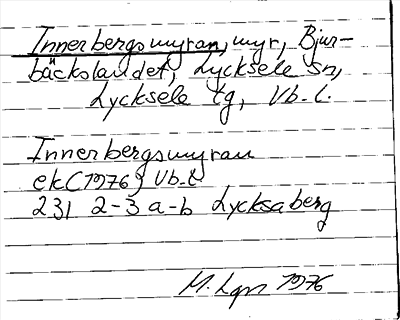 Innerbergsmyran, myr, Bjur-
bäckslandet, Lycksele sn,
Lycksele tg, Vb. l.
Innerbergsmyran
ek (1976) Vb. l
231 2-3 a-b Lycksaberg
M. Lgn 1976